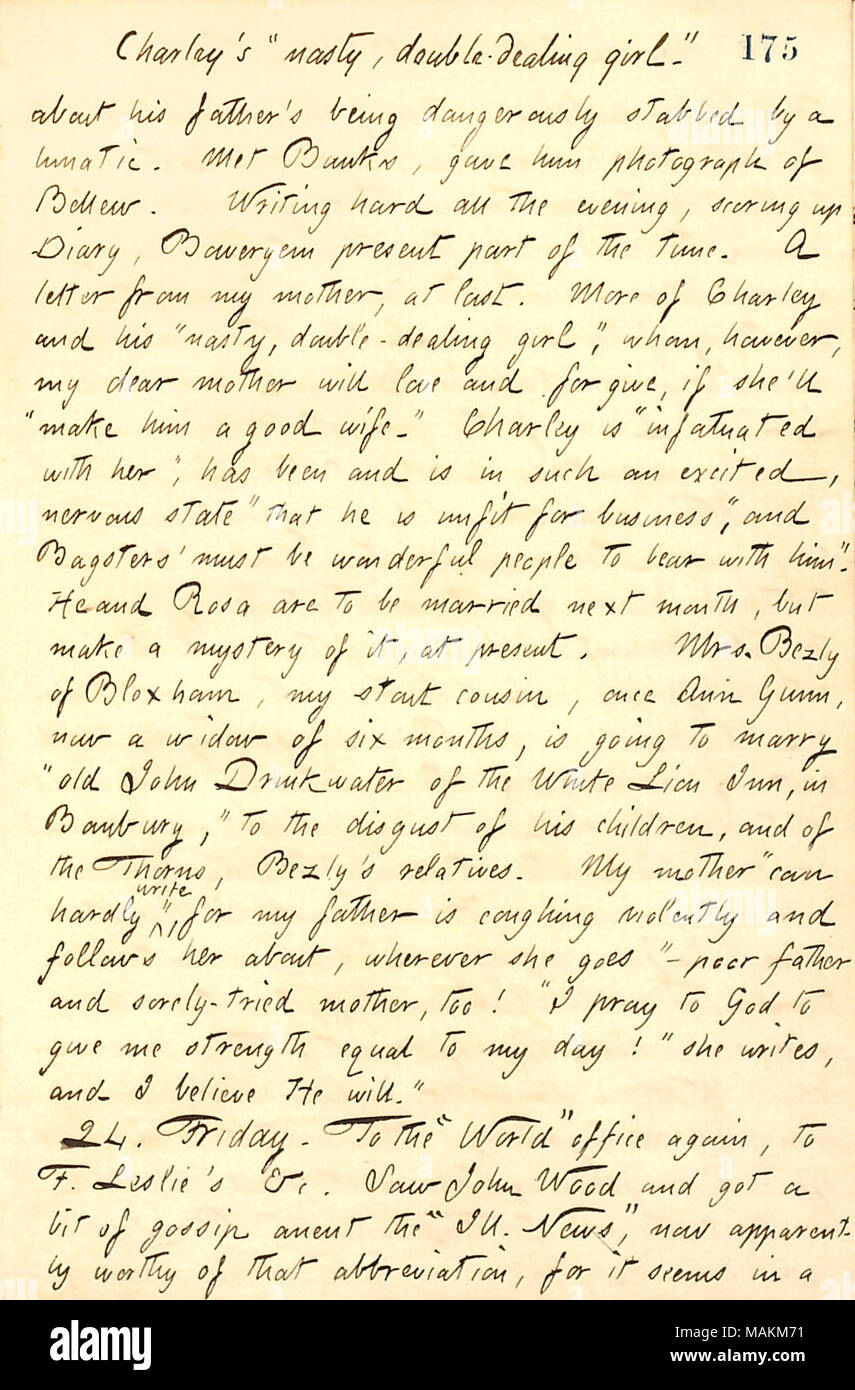 Charley's "nasty, double-dealing girl." 175
about his father's being dangerously stabbed by a
lunatic. Met Banks, gave him photograph of
Bellew. Writing hard all the evening, scoring up
Diary, Boweryem present part of the time. A
letter from my mother, at last. More of Charley
and his "nasty, double-dealing girl", whom, however,
my dear mother will love and forgive, if she'll
"make him a good wife." Charley is "infatuated
with her", has been and is in such an excited,
nervous state" that he is unfit for business", and
Bagsters' must be wonderful people to bear with him".
He and Rosa are to be married next month, but
make a mystery of it, at present. Mrs. Bezly
of Bloxham, my stout cousin, once Ann Gunn,
now a widow of six months, is going to marry
"old John Drinkwater of the White Lion Inn, in
Banbury," to the disgust of his children, and of
the Thorns, Bezly's relatives. My mother "can
write
hardly ^", for my father is coughing violently and
follows her about, wherever she goes "- poor father
and sorely-tried mother, too! "I pray to God to
give me strength equal to my day!" she writes,
and I believe He will."
24. Friday. To the "World" office again, to
F. Leslie's &c. Saw John Wood and got a
bit of gossip anent the "Ill. News", now apparent-
ly worthy of that abbreviation, for it seems in a
alamy
Image ID: MAKM71
www.alamy.com